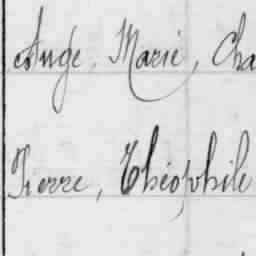 Ange, Marie, Cha
Pierre, Théophile